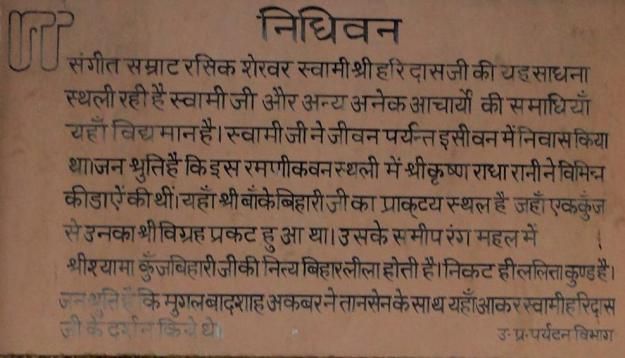 निधिवन
संगीत सम्राट रसिक शेखर स्वामी श्री हरिदासजी की यह साधना
स्थली रही है स्वामी जी और अन्य अनेक आचार्यों की समाधियाँ
यहाँ विद्यमान है। स्वामी जी ने जीवन पर्यन्त इसी वन में निवास किया
था। जन श्रुति है कि इस रमणीक वन स्थली में श्री कृष्ण राधा रानी ने विभिन्न
क्रीडाऐं की थीं। यहाँ श्री बाँके बिहारी जी का प्राक्टय स्थल है जहाँ एक कुँज
से उनका श्री विग्रह प्रकट हुआ था। उसके समीप रंग महल में
श्री श्यामा कुँजबिहारी जी की नित्य बिहार लीला होती है। निकट ही ललिता कुण्ड है।
जन श्रुति है कि मुगल बादशाह अकबर ने तानसेन के साथ यहाँ आकर स्वामी हरिदास
जी के दर्शन किये थे।
उ॰ प्र॰ पर्यटन विभाग